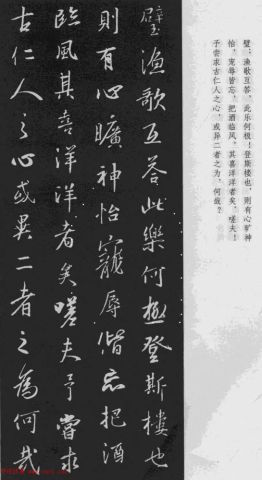 璧，渔歌互答，此乐何极！登斯楼也，则有心旷神
怡，宠辱皆忘，把酒临风，其喜洋洋者矣。嗟夫！
予尝求古仁人之心，或异二者之为，何哉？
璧漁歌互答此樂何極登斯樓也
則有心曠神怡寵辱偕忘把酒
臨風其喜洋洋者矣嗟夫予嘗求
古仁人之心或異二者之為何哉